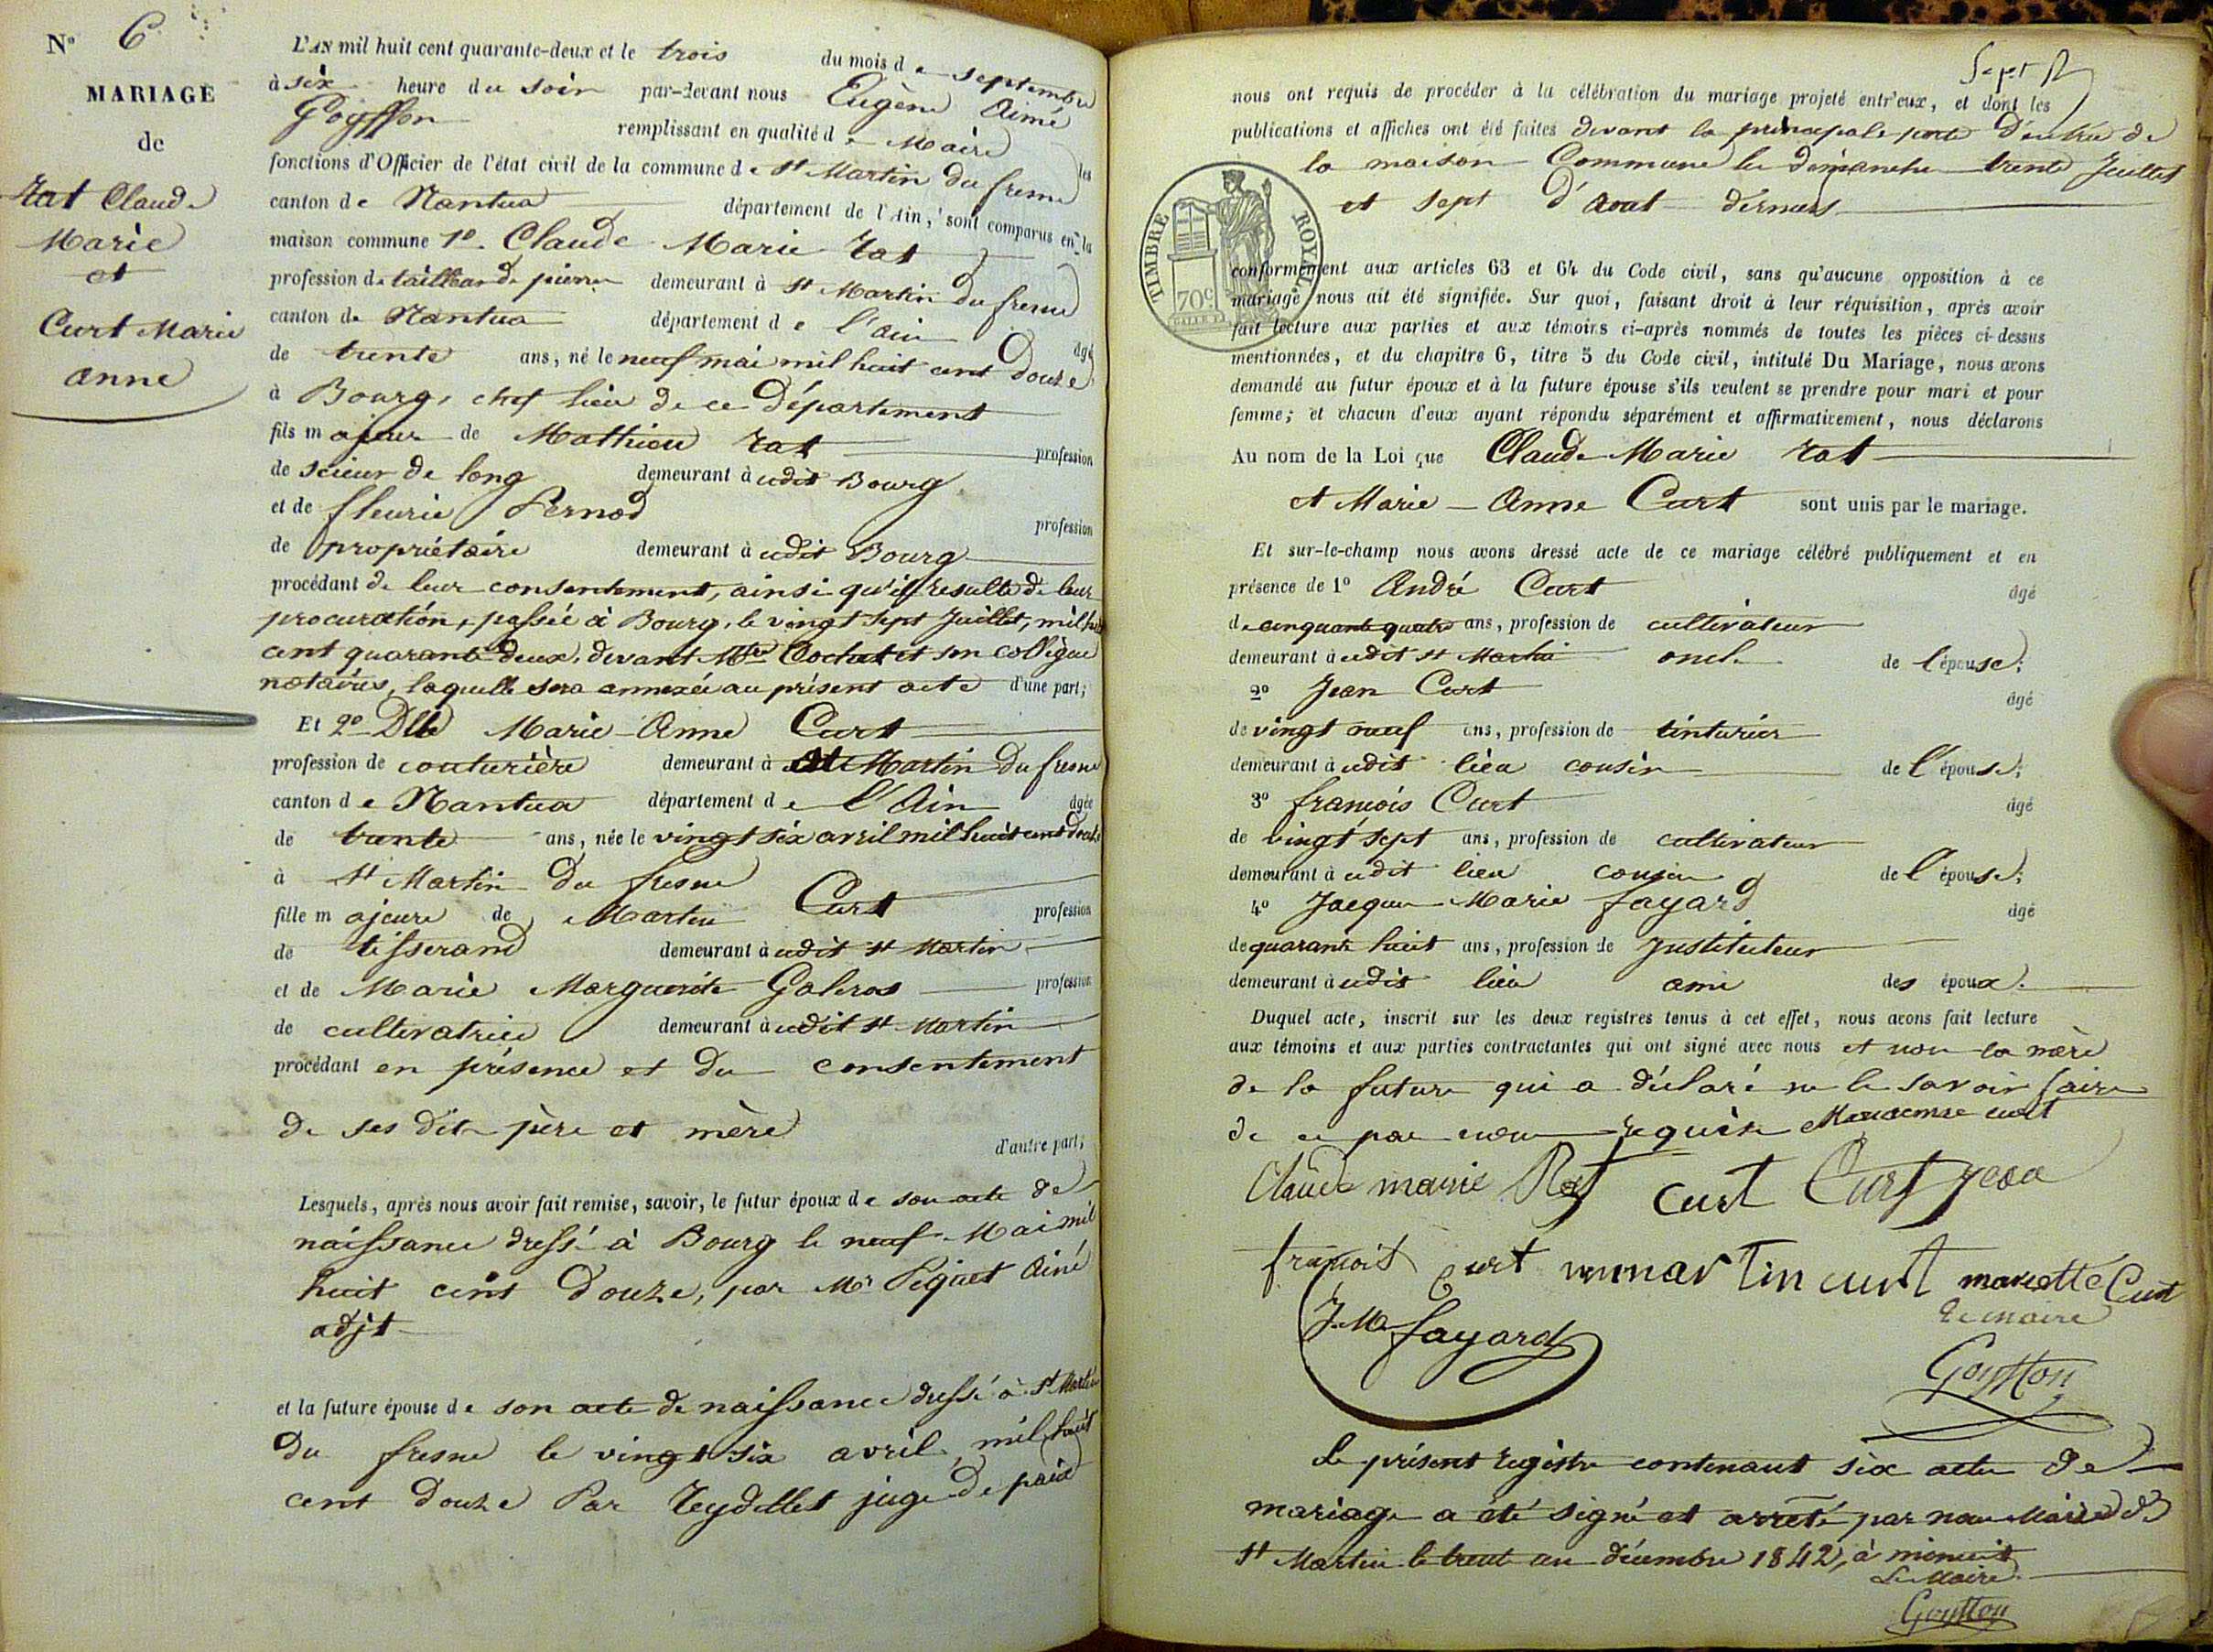 N° 6
MARIAGE
de
Rat Claude
Marie
et
Curt Marie
anne
L'AN mil huit cent quarante-deux et le trois du mois de septembre
à six heure du soir par-devant nous Eugène Aimé
Goyffon remplissant en qualité de Maire les
fonctions d'Officier de l'état civil de la commune de St Martin du fresne
canton de Nantua département de l'Ain, sont comparus en la
maison commune 1° Claude Marie Rat
profession de tailleur de pierre demeurant à St Martin du fresne
canton de Nantua département de l'ain âgé
de trente ans, né le neuf mai mil huit cent douze
à Bourg, chef lieu de ce Département
fils majeur de Mathieu Rat profession
de scieur de long demeurant à udit Bourg
et de fleurie Pernod profession
de propriétaire demeurant à udit Bourg
procédant de leur consentement, ainsi qu'il resulte de leur
procuration, passée à Bourg, le vingt sept Juillet, mil huit
cent quarante deux, devant Mtre Cochet et son collègue
notaires, laquelle sera annexée au présent acte d'une part;
Et 2° Dlle Marie Anne Curt
profession de couturière demeurant à St Martin du fresne
canton de Nantua département de l'Ain âgée
de trente ans, née le vingt six avril mil huit cent douze
à St Martin du fresne
fille majeure de Martin Curt profession
de tisserand demeurant à udit St Martin
et de Marie Marguerite Goleros profession
de cultivatrice demeurant à udit St Martin
procédant en présence et du consentement
de ses dits père et mère
d'autre part;
Lesquels, après nous avoir fait remise, savoir, le futur époux de son acte de
naissance dressé à Bourg le neuf Mai mil
huit cent douze, par Mr Piquet Ainé
adjt
et la future épouse de son acte de naissance dressé à St Martin
du fresne le vingt six avril mil huit
cent douze Par Reydellet juge de paix
Sept
nous ont requis de procéder à la célébration du mariage projeté entr'eux, et dont les
publications et affiches ont été faites devant la principale porte d'entrée de
la maison Commune les dimanche trente Juillet
et sept d'aout derniers
TIMBRE ROYAL
70c
conformément aux articles 63 et 64 du Code civil, sans qu'aucune opposition à ce
mariage nous ait été signifiée. Sur quoi, faisant droit à leur réquisition, après avoir
fait lecture aux parties et aux témoins ci-après nommés de toutes les pièces ci-dessus
mentionnées, et du chapitre 6, titre 5 du Code civil, intitulé Du Mariage, nous avons
demandé au futur époux et à la future épouse s'ils veulent se prendre pour mari et pour
femme; et chacun d'eux ayant répondu séparément et affirmativement, nous déclarons
Au nom de la Loi que Claude Marie Rat
et Marie-Anne Curt sont unis par le mariage.
Et sur-le-champ nous avons dressé acte de ce mariage célébré publiquement et en
présence de 1° André Curt âgé
de cinquante quatre ans, profession de cultivateur
demeurant à udit St Martin oncle de l'épouse;
2° Jean Curt âgé
de vingt neuf ans, profession de tinturier
demeurant à udit lieu cousin de l'épouse;
3° françois Curt âgé
de vingt sept ans, profession de cultivateur
demeurant à udit lieu cousin de l'épouse;
4° Jacque Marie fayard âgé
de quarante huit ans, profession de Instituteur
demeurant à udit lieu ami des époux.
Duquel acte, inscrit sur les deux registres tenus à cet effet, nous avons fait lecture
aux témoins et aux parties contractantes qui ont signé avec nous et non la mère
de la future qui a déclaré ne le savoir faire
de ce par nous requise Marianne curt
Claude marie Rat curt Curt Jean
françois Curt martin curt mariette Curt
J. M. fayard Le maire
Goyffon
Le présent registre contenant six actes de
mariage a été signé et arrêté par nous Maire de
St Martin le trent un décembre 1842, à minuit
Le Maire
Goyffon